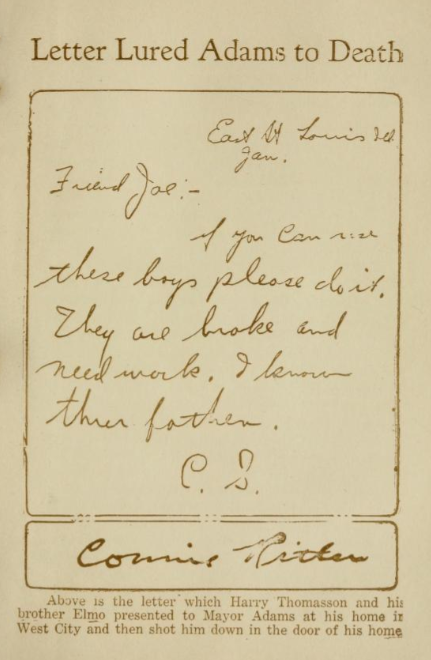 Letter Lured Adams to Death
East St Louis Ill
Jan.
Friend Joe:-
If you can use
these boys please do it.
They are broke and
need work. I know
thier father.
C. B.
Connie Ritter
Above is the letter which Harry Thomasson and his
brother Elmo presented to Mayor Adams at his home in
West City and then shot him down in the door of his home